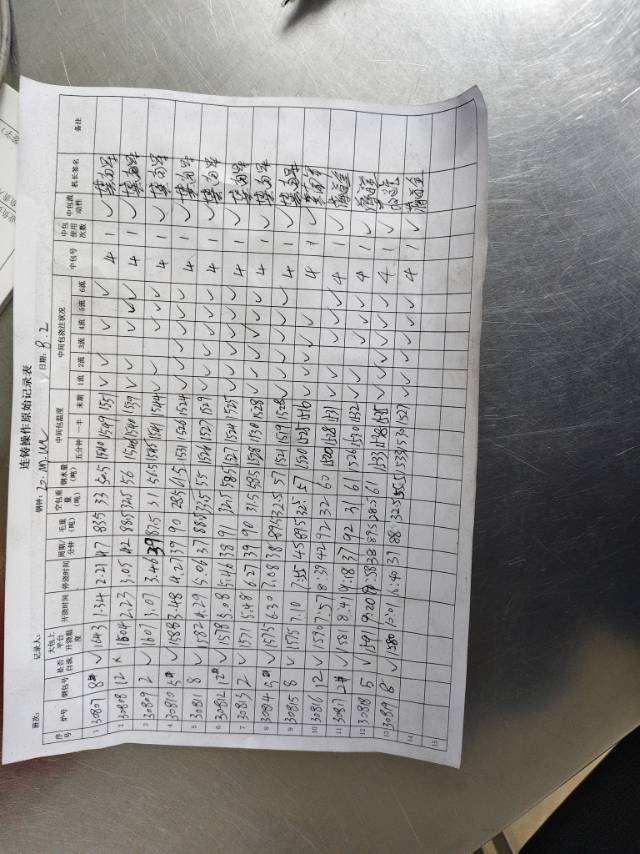 连铸操作原始记录表
班次: 记录人: 钢种: 20-MnCr 日期: 8.2
序号 炉号 钢包号 是否自流 大包上平台开浇温度 开浇时间 停浇时间 周期/分钟 毛重(吨) 空包重量(吨) 钢水量(吨) 中间包温度 五分钟 一半 末期 中间包浇注状况 1流 2流 3流 4流 5流 6流 中包号 中包使用次数 中包流动性 机长签名 备注
1 30807 8# ✓ 1643 1:34 2:21 47 83.5 33 50.5 1540 1549 1551 ✓ ✓ ✓ ✓ 4 1 ✓
2 30808 12 × 1604 2:23 3:05 42 88.5 32.5 56 1540 1540 1539 ✓ ✓ ✓ ✓ ✓ 4 1 ✓
3 30809 2 ✓ 1607 3:07 3:46 39 87.5 31 56.5 1545 1541 1544 ✓ ✓ ✓ ✓ ✓ 4 1 ✓
4 30810 5# ✓ 1588 3:48 4:27 39 90 28.5 61.5 1531 1526 1524 ✓ ✓ ✓ ✓ ✓ 4 1 ✓
5 30811 8 ✓ 1582 4:29 5:06 37 88.5 33.5 55 1526 1527 1529 ✓ ✓ ✓ ✓ ✓ 4 1 ✓
6 30812 12# ✓ 1578 5:08 5:46 38 91 32.5 58.5 1527 1524 1525 ✓ ✓ ✓ ✓ ✓ 4 1 ✓
7 30813 2 ✓ 1571 5:48 6:27 39 90 31.5 58.5 1528 1530 1528 ✓ ✓ ✓ ✓ ✓ 4 1 ✓
8 30814 5# ✓ 1575 6:30 7:08 38 89.5 32.5 57 1521 1519 1522 ✓ ✓ ✓ ✓ ✓ 4 1 ✓
9 30815 8 ✓ 1575 7:10 45 89.5 32.5 57 1520 1525 ✓ ✓ ✓ ✓ 4 1 ✓
10 30816 12 ✓ 1590 7:57 8:39 42 92 32 60 1520 1528 1531 ✓ ✓ ✓ ✓ ✓ 4 1 ✓
11 30817 2# ✓ 1581 8:41 9:18 37 92 31 61 1526 1520 1532 ✓ ✓ ✓ ✓ ✓ 4 1 ✓
12 30818 5 ✓ 1591 9:20 9:58 38 89.5 28.5 61 1533 1538 ✓ ✓ ✓ ✓ ✓ 4 1 ✓
13 30819 8 ✓ 1580 10:01 10:40 37 88 32.5 55.5 1533 1530 1527 ✓ ✓ ✓ ✓ ✓ 4 1 ✓
14
15